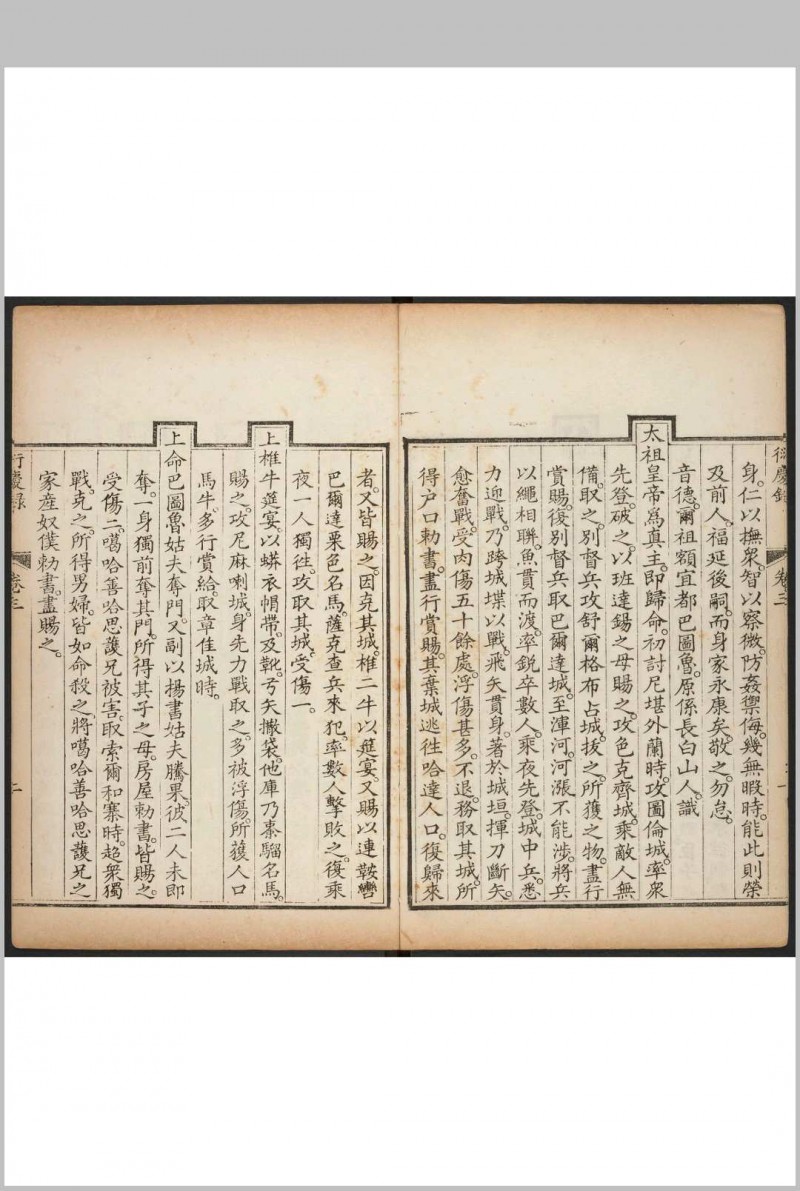 身。仁以撫衆。智以察微。防姦禦侮。幾無暇時。能此則榮
及前人。福延後嗣。而身家永康矣。敬之。勿怠。
音德。爾祖額宜都巴圖魯。原係長白山人。識
太祖皇帝為真主。即歸命。初討尼堪外蘭時。攻圖倫城。率衆
先登。破之。以班達錫之母賜之。攻色克齊城。乘敵人無
備。取之。別督兵攻舒爾格布占城。拔之。所獲之物。盡行
賞賜。後別督兵取巴爾達城。至渾河。河漲不能涉。將兵
以繩相聯。魚貫而渡。率銳卒數人。乘夜先登。城中兵。悉
力迎戰。乃跨城堞以戰。飛矢貫身。著於城垣。揮刀斷矢。
愈奮戰。受肉傷五十餘處。浮傷甚多。不退。務取其城。所
得户口勅書。盡行賞賜。其棄城逃徃哈達人口。復歸來
者。又皆賜之。因克其城。椎二牛以筵宴。又賜以連鞍轡
巴爾達栗色名馬。薩克查兵來犯。率數人擊敗之。復乘
夜一人獨徃。攻取其城。受傷一。
上椎牛筵宴。以蟒衣帽帶。及靴。弓矢撒袋。他庫乃棗騮名馬。
賜之。攻尼麻喇城。身先力戰取之。多被浮傷。所獲人口
馬牛。多行賞給。取章佳城時。
上命巴圖魯姑夫奪門。又副以揚書姑夫騰果。彼二人未即
奪。一身獨前奪其門。所得其子之母。房屋勅書。皆賜之。
受傷二。噶哈善哈思護兄被害。取索爾和寨時。超衆獨
戰。克之。所得男婦。皆如命殺之。將噶哈善哈思護兄之
家産奴僕勅書。盡賜之。
衍慶錄
卷三
二